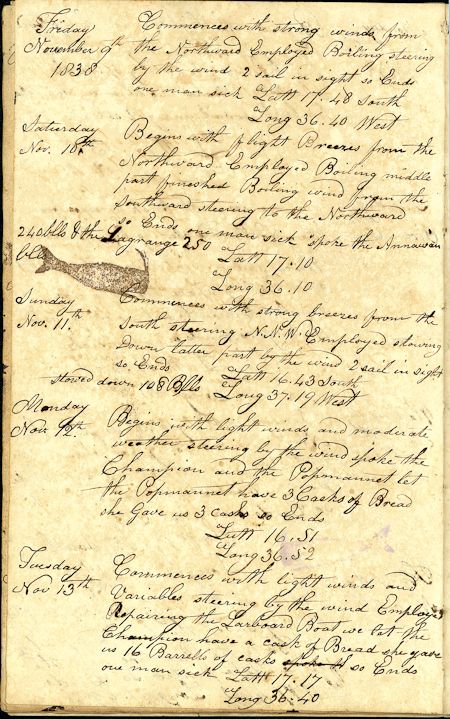 Friday Commences with strong winds from
November 9th the Northward Employed Boiling steering
1838 by the wind 2 sail in sight so Ends
one man sick Latt 17.48 South
Long 36.40 West
Saturday Begins with flight Breezes from the
Nov. 10th Northward Employed Boiling middle
part finished Boiling wind from the
Southward steering to the Northward
so Ends one man sick spoke the Annawan
240 blls & the Lagrange 250
blls Latt 17.10
Long 36.10
Sunday Commences with strong breezes from the
Nov. 11th South steering N.N.W. Employed stowing
Down latter part by the wind 2 sail in sight
so Ends Latt 16.43 South
stowed down 108 Blls Long 37.19 West
Monday Begins with light winds and moderate
Nov. 12th weather steering by the wind spoke the
Champion and the Popmannet let
the Popmannet have 3 Casks of Bread
she Gave us 3 casks so Ends
Latt 16.51
Long 36.52
Tuesday Commences with light winds and
Nov 13th Variables steering by the wind Employd
Repairing the Larboard Boat we let the
Champion have a cask of Bread she gave
us 16 Barrells of casks spoke so Ends
one man sick Latt 17.17
Long 36.40